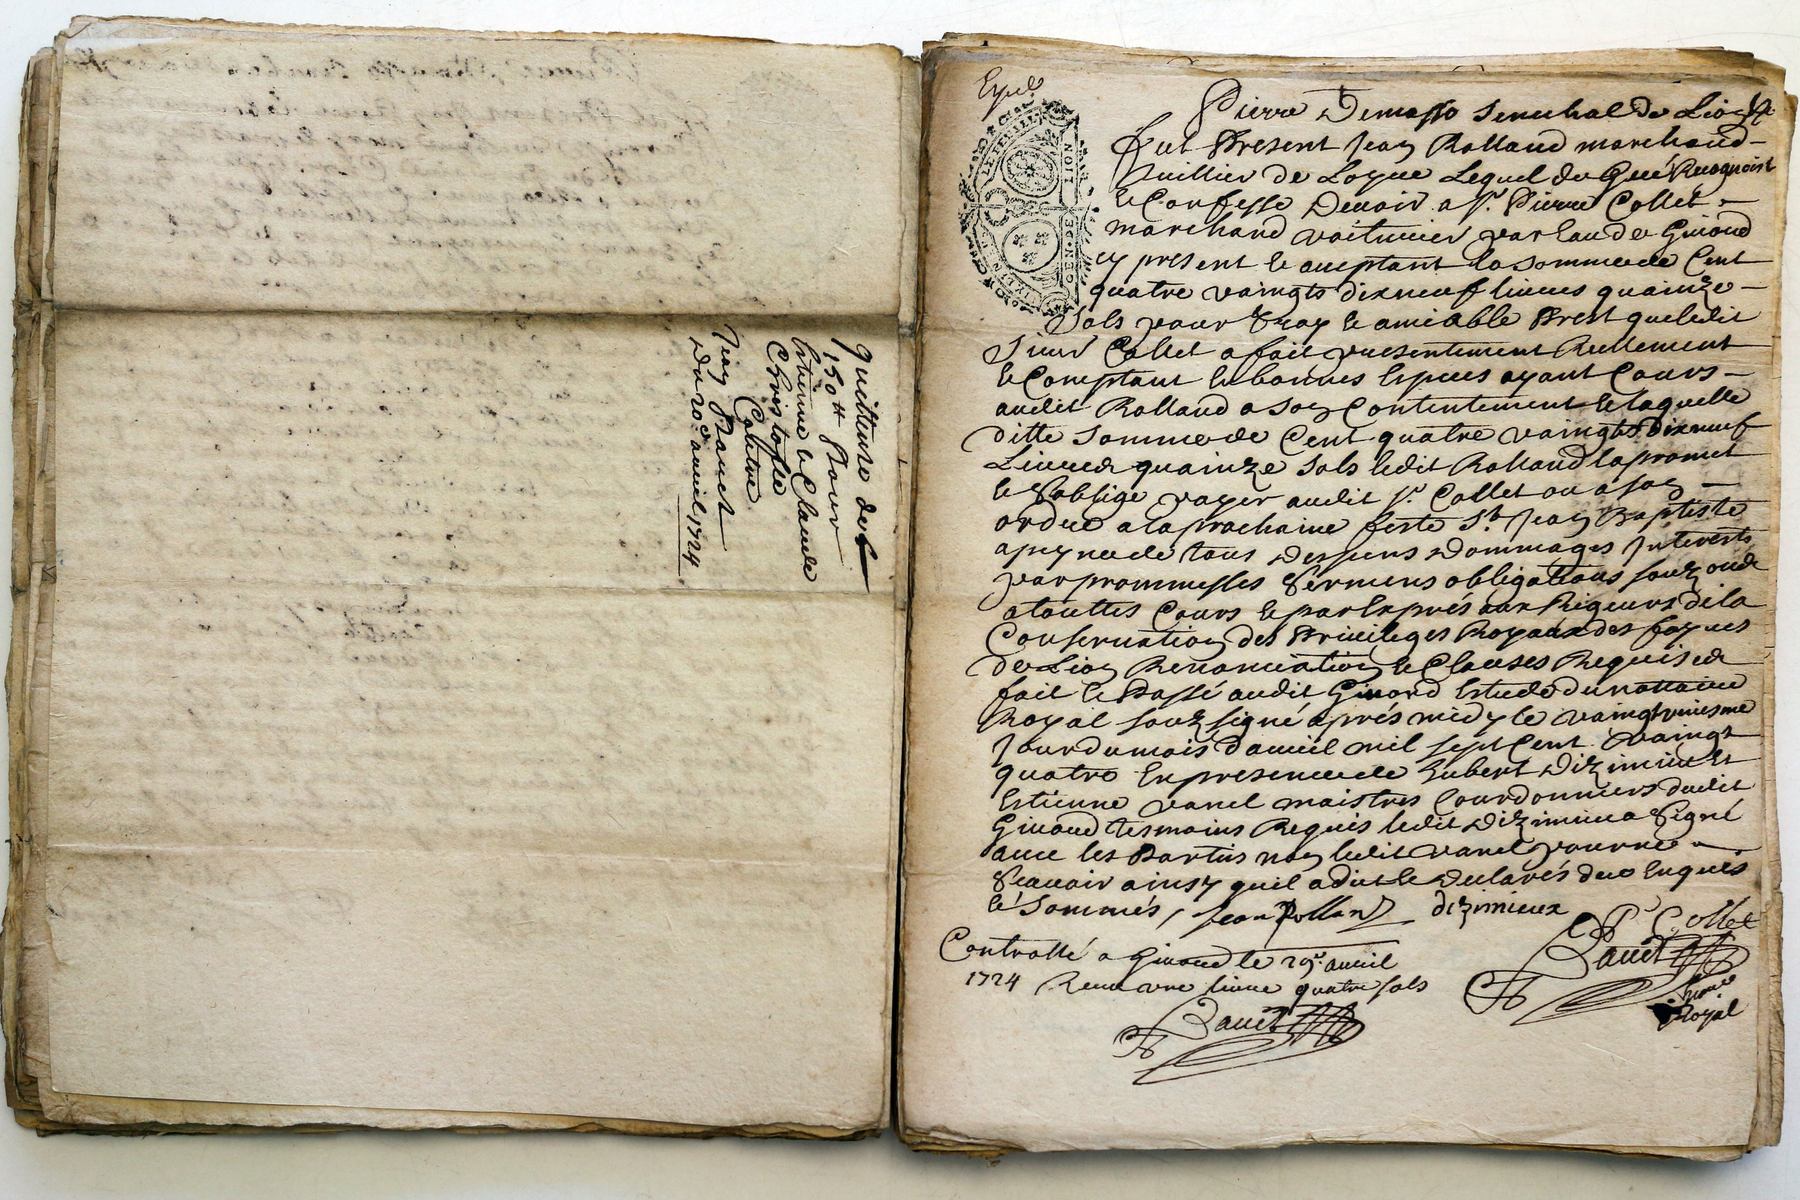 Quittance de
150tt pour
Estienne & Claude
Christophe
Contre
Jean
Du 20e auril 1724
Expée
GEN DE LION
Pierre Demasso Senechal de Lion
fut Present Jean Rolland marchand
de Loyre Lequel de Gré Recognoist
& Confesse Deuoir a sr. Pierre Collet
marchand voiturier par Eau de Giuord
cy present & aceptant La somme de Cent
quatre vaingts dix neuf liures quainze
sols pour Vray & amiable Prest que ledit
sieur Collet a fait presentement Reellement
& Comptant En bonnes Especes ayant Cours
audit Rolland a son Contentement & laquelle
ditte somme de Cent quatre vaingts dix neuf
Liures quainze sols ledit Rolland la promet
& S'oblige payer audit sr. Collet ou a son
ordre a la prochaine feste St Jean Baptiste
a peyne de tous Despens Dommages Interests
par prommesses Sermens obligations
a touttes Cours & par Exprés aux Rigeurs de la
Conseruation des Priuileges Royaux des foyres
de Lion Renonciation & Clauses Requises
fait & Passé audit Giuord Estude du nottaire
Royal souz signé aprés midy le
Jour du mois dauril mil sept Cent vaingt
quatre En presence de hubert Dizimieu Et
Estienne vanel maistres Cordonniers dudit
Giuord tesmoins Requis ledit Dizimieu a Signé
auec les Parties non ledit vanel pour ne
Scauoir ainsy quil a dit & Declarés de ce Enquis
& Sommés, Jean Rolland dizimieux
P Collet
Controllé a Giuord le auril
1724 Receu une liure quatre sols
Royal